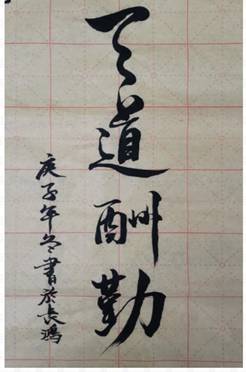 天道酬勤
庚子年冬書於長鴻